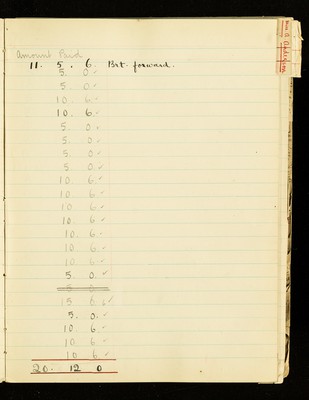 Amount Paid
11. 5. 6. Brt. forward.
5. 0. ✓
5. 0. ✓
10. 6. ✓
10. 6. ✓
5. 0. ✓
5. 0. ✓
5. 0. ✓
5. 0. ✓
10. 6. ✓
10. 6. ✓
10. 6. ✓
10. 6. ✓
10. 6. ✓
10. 6. ✓
10. 6. ✓
5. 0. ✓
5. 0. ✓
10. 6. ✓
10. 6. ✓
10 6 ✓
20. 12 0